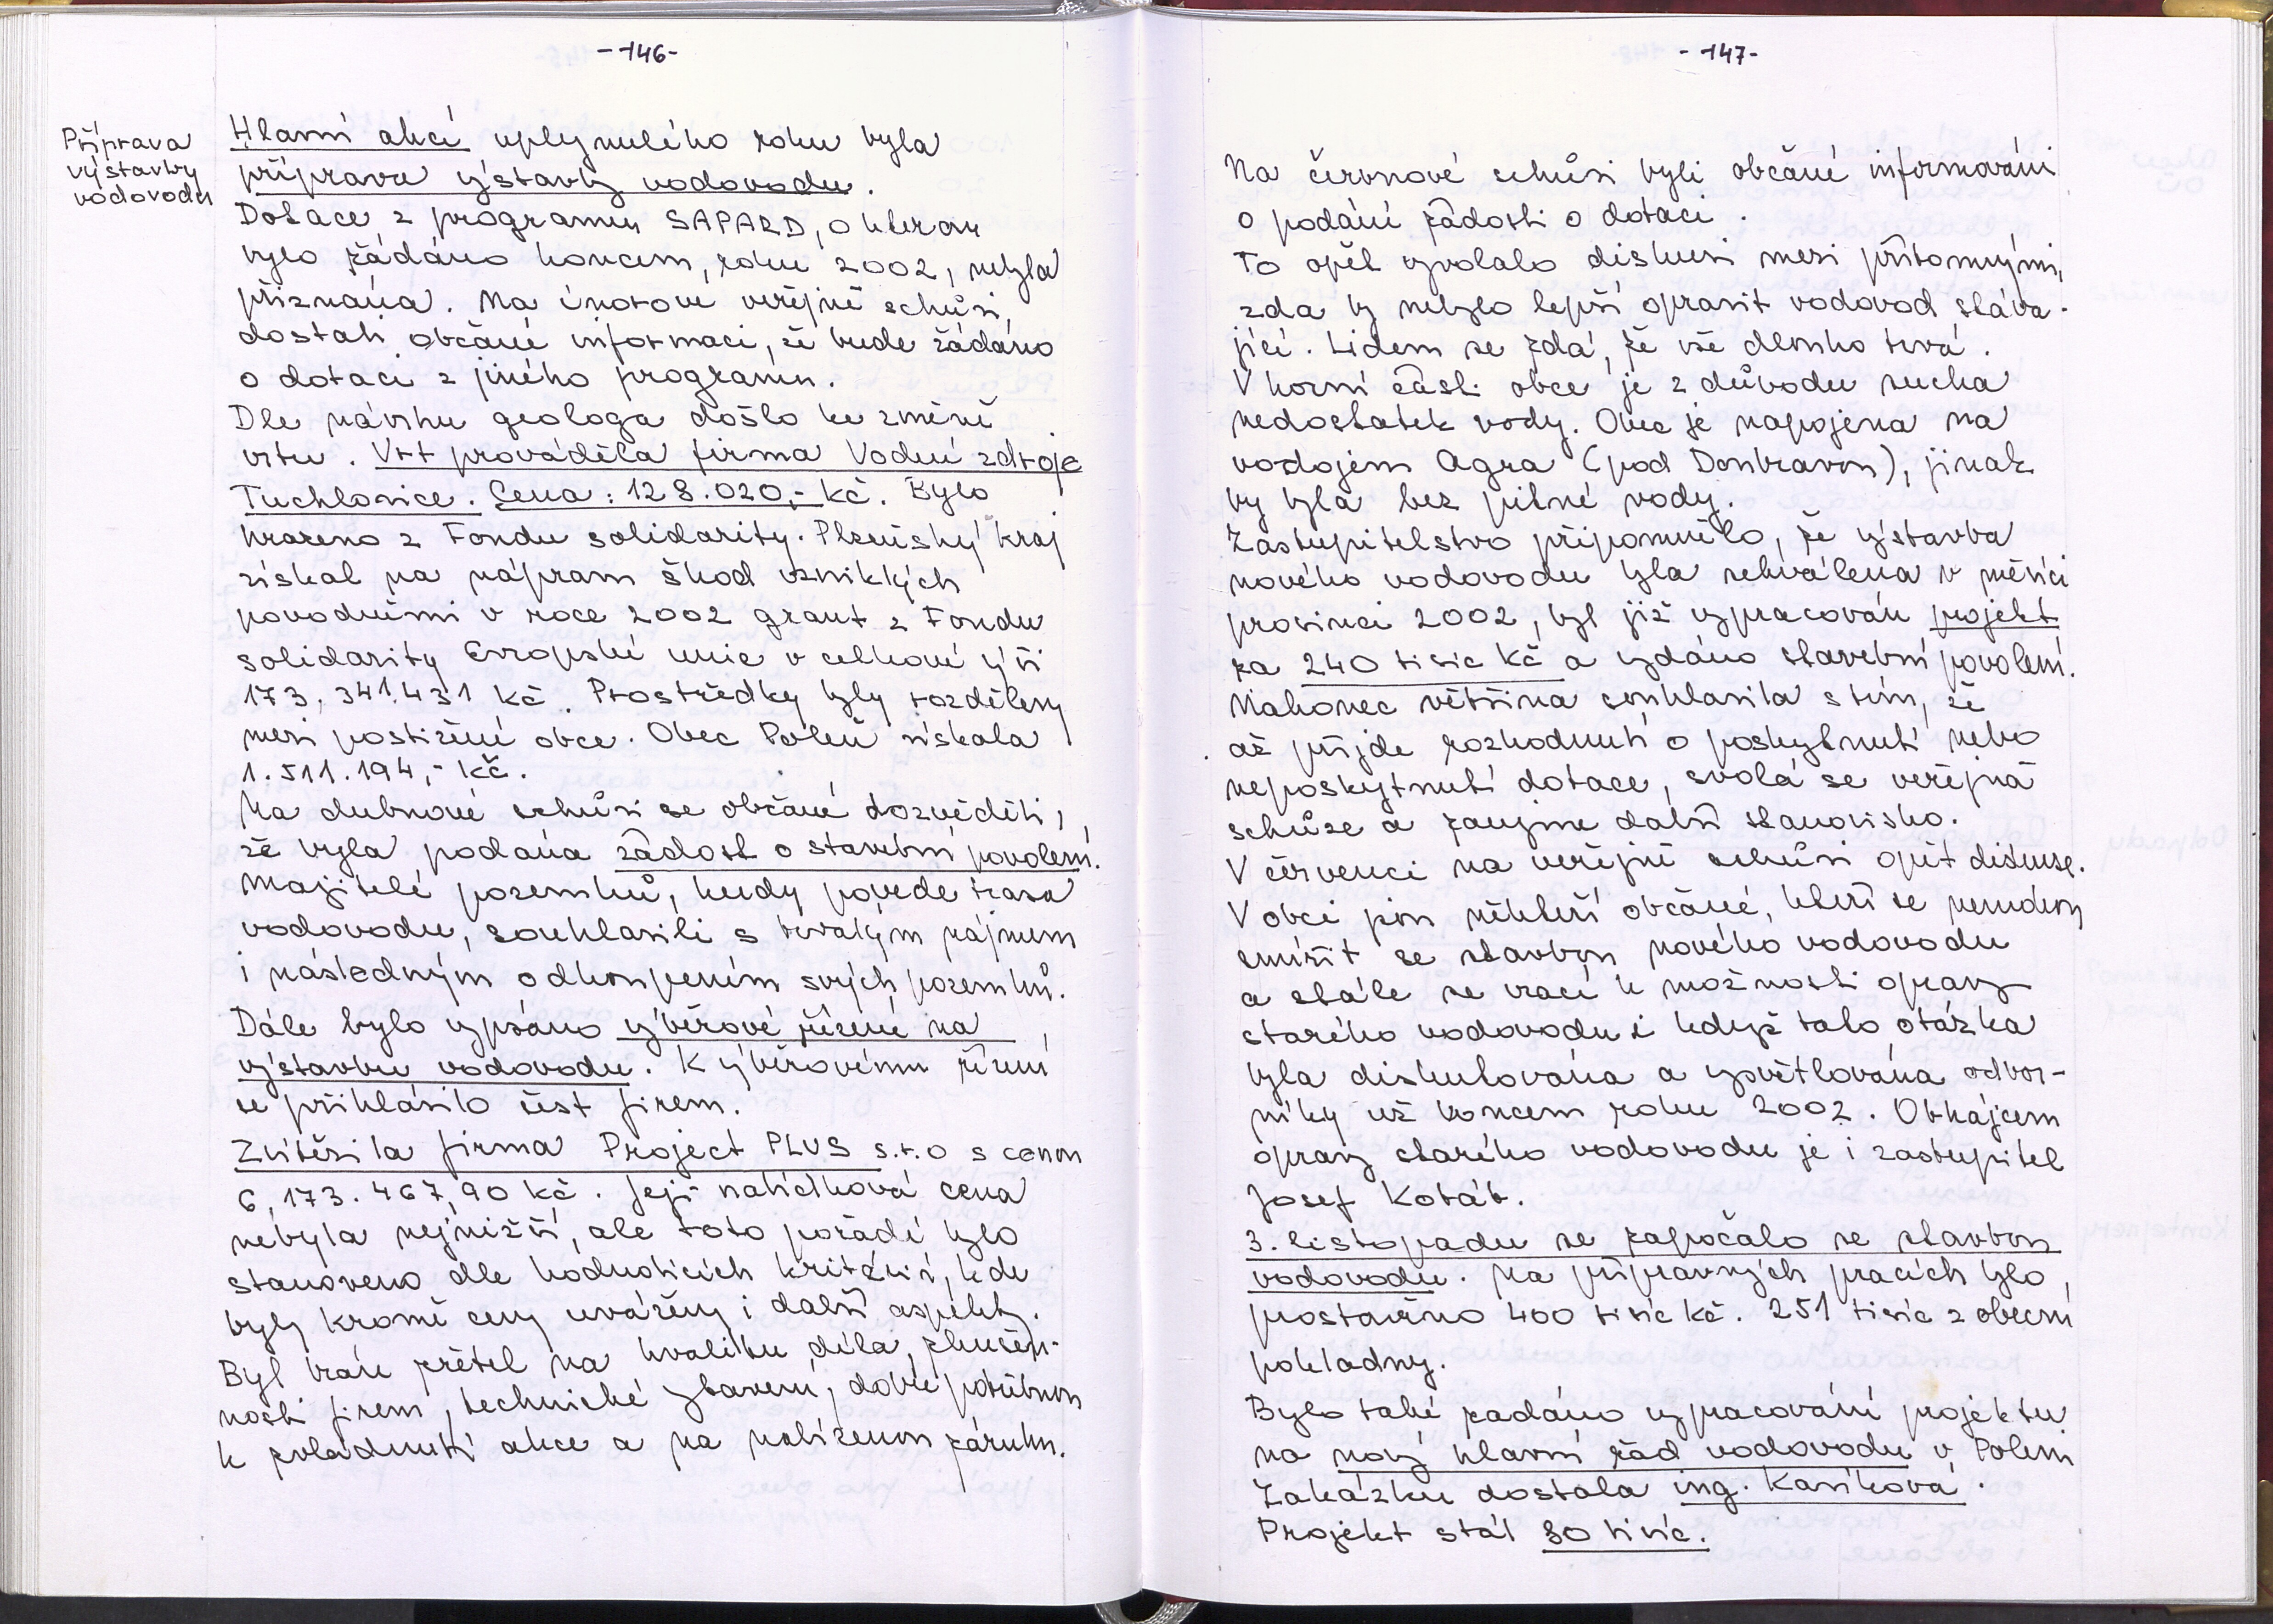 -146-
Příprava
výstavby
vodovodu
Hlavní akcí uplynulého roku byla
příprava výstavby vodovodu.
Dotace z programu SAPARD, o kterou
bylo žádáno koncem roku 2002, nebyla
přiznána. Na únorové veřejné schůzi
dostali občané informaci, že bude žádáno
o dotaci z jiného programu.
Dle návrhu geologa došlo ke změně
vrtu. Vrt prováděla firma Vodní zdroje
Tuchlovice. Cena: 128.020,- Kč. Bylo
hrazeno z Fondu solidarity. Plzeňský kraj
získal na nápravu škod vzniklých
povodněmi v roce 2002 grant z Fondu
solidarity Evropské unie v celkové výši
173.341.431 Kč. Prostředky byly rozděleny
mezi postižené obce. Obec Poleň získala
1.511.194,- Kč.
Na dubnové schůzi se občané dozvěděli,
že byla podána žádost o stavební povolení.
Majitelé pozemků, kudy povede trasa
vodovodu, souhlasili s trvalým nájmem
i následným odkoupením svých pozemků.
Dále bylo vypsáno výběrové řízení na
výstavbu vodovodu. K výběrovému řízení
se přihlásilo šest firem.
Zvítězila firma Project PLUS s.r.o s cenou
6,173.467,90 Kč. Její nabídková cena
nebyla nejnižší, ale toto pořadí bylo
stanoveno dle hodnotících kritérií, kde
byly kromě ceny uváženy i další aspekty.
Byl brán zřetel na kvalitu díla, zkušen-
nosti firem, technické vybavení, dobře potřebnou
k zvládnutí akce a na nabízenou záruku.
-147-
Na červnové schůzi byli občané informováni
o podání žádosti o dotaci.
To opět vyvolalo diskusi mezi přítomnými,
zda by nebylo lepší opravit vodovod stáva-
jící. Lidem se zdá, že vše dlouho trvá.
V horní části obce je z důvodu sucha
nedostatek vody. Obec je napojena na
vodojem Agra (pod Doubravou), jinak
by byla bez pitné vody.
Zastupitelstvo připomnělo, že výstavba
nového vodovodu byla schválena v měsíci
prosinci 2002, byl již vypracován projekt
za 240 tisíc Kč a vydáno stavební povolení.
Nakonec většina souhlasila s tím, že
až přijde rozhodnutí o poskytnutí nebo
neposkytnutí dotace, svolá se veřejná
schůze a zaujme další stanovisko.
V červenci na veřejné schůzi opět diskuse.
V obci jsou někteří občané, kteří se nemohou
smířit se stavbou nového vodovodu
a stále se vrací k možnosti opravy
starého vodovodu i když tato otázka
byla diskutována a vysvětlována odbor-
níky už koncem roku 2002. Obhájcem
opravy starého vodovodu je i zastupitel
Josef Kotáb.
3. listopadu se započalo se stavbou
vodovodu. Na přípravných pracích bylo
prostavěno 400 tisíc Kč. 251 tisíc z obecní
pokladny.
Bylo také zadáno vypracování projektu
na nový hlavní řad vodovodu v Poleni
Zakázku dostala ing. Kasíková.
Projekt stál 30 tisíc.